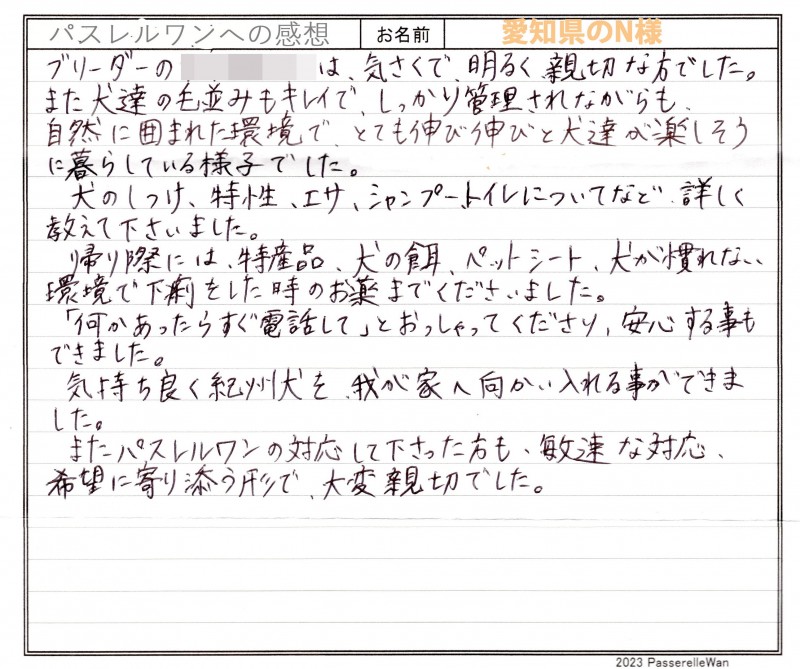 パスレルワンへの感想 お名前 愛知県のN様
ブリーダーの は、気さくで、明るく親切な方でした。
また犬達の毛並みもキレイで、しっかり管理されながらも、
自然に囲まれた環境でとても伸び伸びと犬達が楽しそう
に暮らしている様子でした。
犬のしつけ、特性、エサ、シャンプー、トイレについてなど、詳しく
教えて下さいました。
帰り際には、特産品、犬の餌、ペットシート、犬が慣れない
環境で下痢をした時のお薬までくださいました。
「何かあったらすぐ電話して」とおっしゃってくださり、安心する事も
できました。
気持ち良く紀州犬を、我が家へ向かい入れる事ができま
した。
またパスレルワンの対応して下さった方も、敏速な対応、
希望に寄り添う形で、大変親切でした。
2023 PasserelleWan